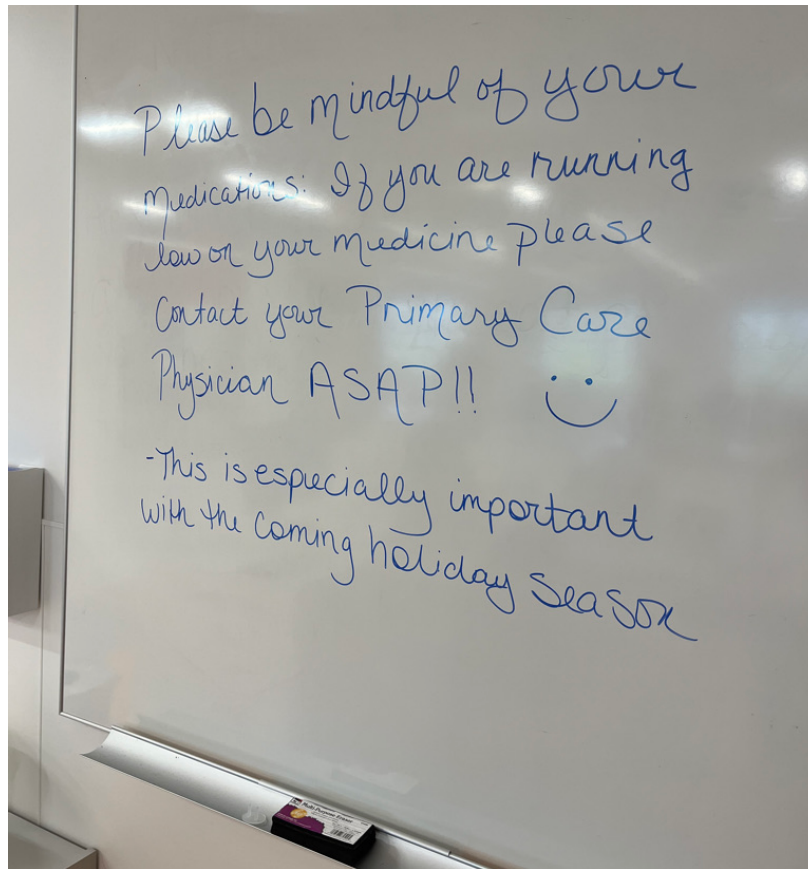 Please be mindful of your
medications: If you are running
low on your medicine please
Contact your Primary Care
Physician ASAP!!
-This is especially important
with the coming holiday season
Multi-Purpose Eraser